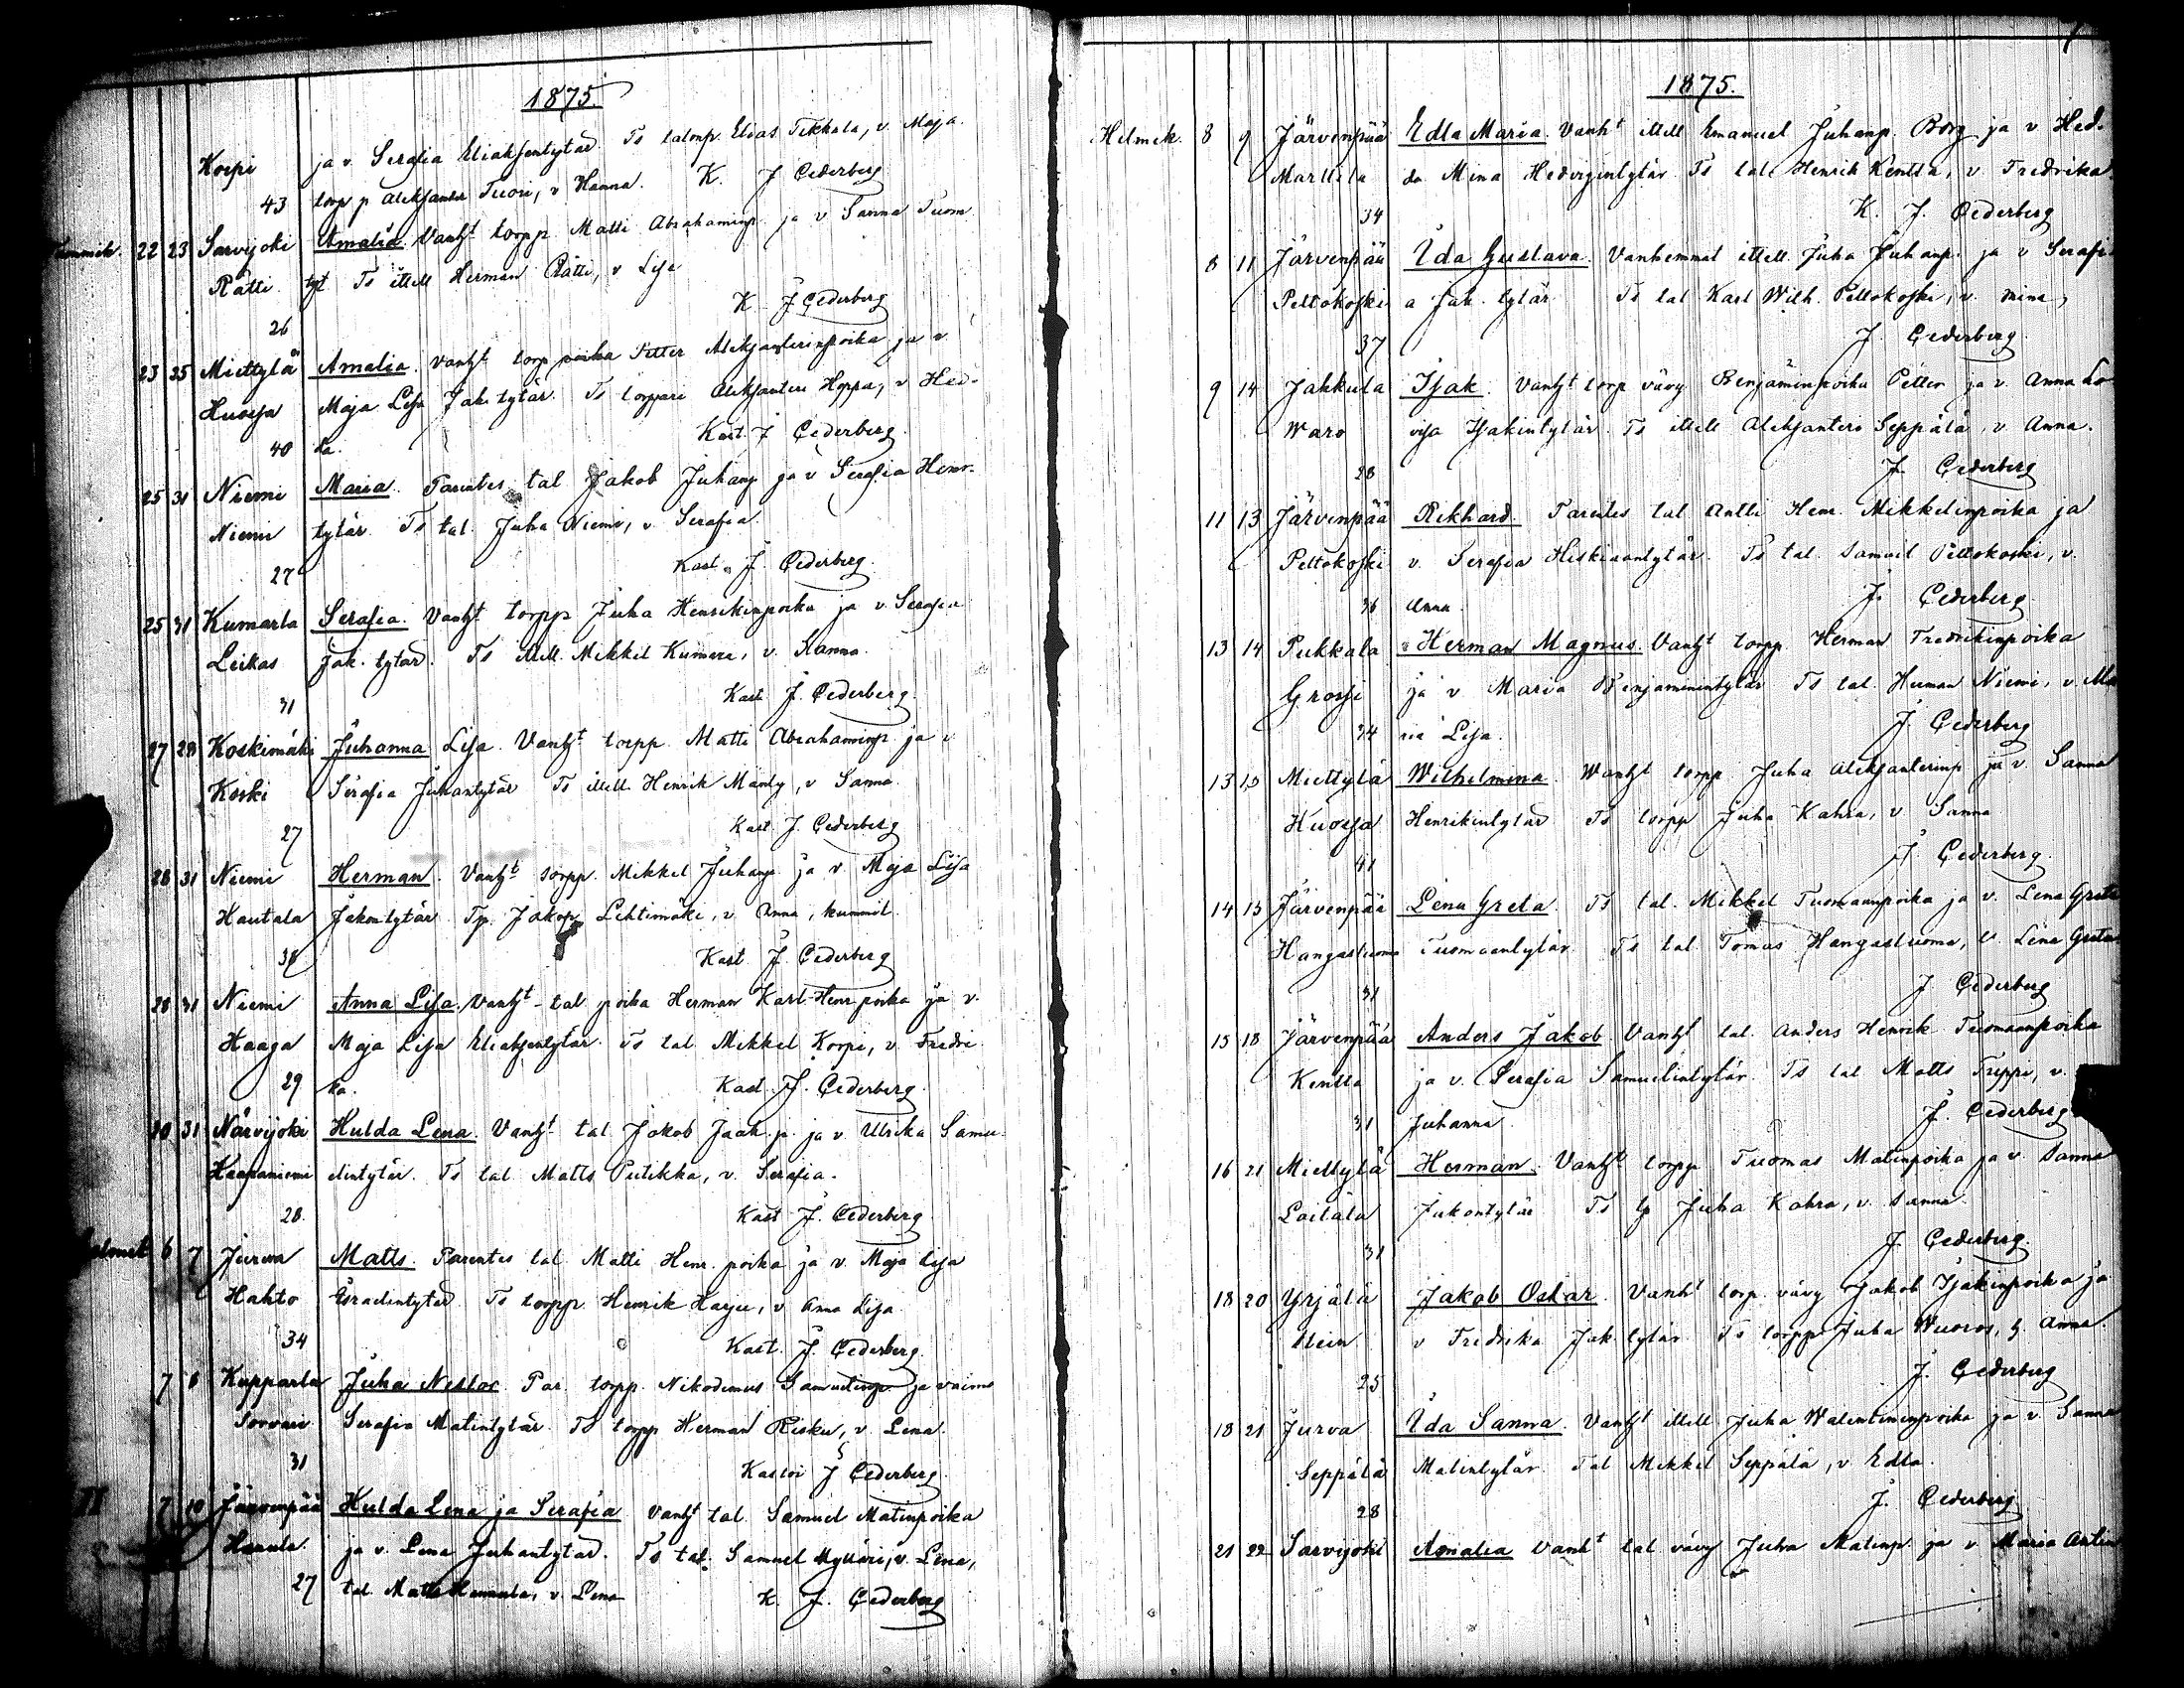 1875.
Korpi ja v. Serafia Eliaksentytär Ts talonp. Elias Tikkala, v. Maja
43 torp p Aleksander Tuori, v Hanna. K. J Cederberg
Tammik. 22 23 Sarvijoki Amalia. Vanht torpp. Matti Abrahaminp. ja v Sanna Tuom
Rätti tyt Ts itsell Herman Rätti, v Lisa
26 K. J Cederberg
23 25 Miettylä Amalia. Vanht torp poika Petter Aleksanterinpoika ja v
Huosja Maja Lisa Jak. tytär. Ts torppari Aleksanteri Hoppa, v Hed-
40 da. Kast. J Cederberg
25 31 Niemi Maria. Parentes tal Jakob Juhanp ja v Serafia Henr.
Niemi tytär. Ts tal. Juha Niemi, v Serafia
27 Kast. J. Cederberg
25 31 Kumarla Serafia. Vanht torpp Juha Henrikinpoika ja v. Serafia
Leikas Jak. tytär. Ts itsell. Mikkel Kumara, v. Sanna
31 Kast J. Cederberg
27 28 Koskimäki Juhanna Lisa. Vanht torpp. Matti Abrahaminp ja v
Koski Serafia Juhantytär Ts itsell. Henrik Mänty, v Sanna
27 Kast. J. Cederberg
28 31 Niemi Herman. Vanht torpp. Mikkel Juhanp ja v. Maja Lisa
Hautala Jakontytär. Tp. Jakop Lehtimäki, v. Anna, kummit.
38 Kast J. Cederberg
28 31 Niemi Anna Lisa. Vanht tal poika Herman Karl-Henr poika ja v.
Haaga Maja Lisa Eliaksentytär. Ts tal. Mikkel Korpi, v. Fredri
29 ka. Kast. J. Cederberg
30 31 Närvijoki Hulda Lena. Vanht tal Jakob Jaak. p. ja v. Ulrika Samu-
Haapaniemi elintytär. Ts tal. Matts Putikka, v. Serafia.
28. Kast J. Cederberg
Helmik 6 7 Jurva Matts. Parentes tal Matti Henr. poika ja v. Maja Lisa
Hahto Esraelintytär Ts torpp. Henrik Harju, v Anna Lisa
34 Kast. J. Cederberg
7 8 Kupparla Juha Nestor Par. torpp. Nikodemus Samuelinp. ja vaimo
Sorvari Serafia Matintytär. Ts torpp Herman Risku, v. Lena.
31 Kastoi J Cederberg
II 7 10 Järvenpää Hulda Lena ja Serafia Vanht tal. Samuel Matinpoika
Hannula ja v. Lena Juhantytär. Ts tal. Samuel Mylläri, v. Lena,
27 tal. Matts Hannula, v. Lena K. J. Cederberg
1875.
Helmik. 8 9 Järvenpää Edla Maria. Vanht itsell Emanuel Juhanp. Borg ja v Hed-
Marttila da Mina Hedviginlytär Ts tal Henrik Kentta, v Fredrika
34 K. J. Cederberg
8 11 Järvenpää Ida Gustava. Vanhemmat itsell. Juha Juhanp. ja v Serafi-
Peltokoski a Jak. tytär Ts tal Karl Wilh. Peltokoski, v. Mina,
37 J Cederberg
9 14 Jakkula Isak. Vanht torp vävy Benjaminpoika Petter ja v. Anna Lo-
Waro visa Isakintytär. Ts itsell Aleksanteri Seppälä, v Anna.
28 J. Cederberg
11 13 Järvenpää Rikhard. Parentes tal Antti Henr. Mikkelinpoika ja
Peltokoski v. Serafia Hiskiaantytär. Ts tal. Samuel Peltokoski, v.
36 Anna. J. Cederberg
13 14 Pukkala Herman Magnus. Vanht torpp. Herman Fredrikinpoika
Grossi ja v Maria Benjaminintytär Ts tal. Herman Niemi, v. Ma
34 ria Lisa. J. Cederberg
13 15 Miettylä Wilhelmina. Vanht torpp. Juha Aleksanterinp ja v. Sanna
Huosja Henrikintytär Ts torpp Juha Kahra, v Sanna
41 J. Cederberg
14 15 Järvenpää Lena Greta. Ts tal. Mikkel Tuomaanpoika ja v. Lena Greta
Hangasluoma Tuomaantytär Ts tal. Tomas Hangasluoma, v. Lena Greta
31 J Cederberg
15 18 Järvenpää Anders Jakob. Vanht tal. Anders Henrik Tuomaanpoika
Kentta ja v. Serafia Samuelintytär Ts tal Matts Trippi, v.
31 Juhanna. J. Cederberg
16 21 Miettylä Herman. Vanht torpp Tuomas Matinpoika ja v. Sanna
Laitala Jukontytär Ts tp Juha Kahra, v. Sanna
31 J. Cederberg
18 20 Yrjälä Jakob Oskar. Vanht torp. vävy Jakob Isakinpoika ja
v Fredrika Jak. tytär Ts torpp Juha Wuoros, h Anna.
25 J. Cederberg
18 21 Jurva Ida Sanna. Vanht itsell Juha Walentininpoika ja v. Sanna
Seppälä Matintytär. Tal Mikkel Seppälä, v Edla.
28 J. Cederberg
21 22 Sarvijoki Amalia Vanht tal vävy Juha Matinp. ja v Maria Antin